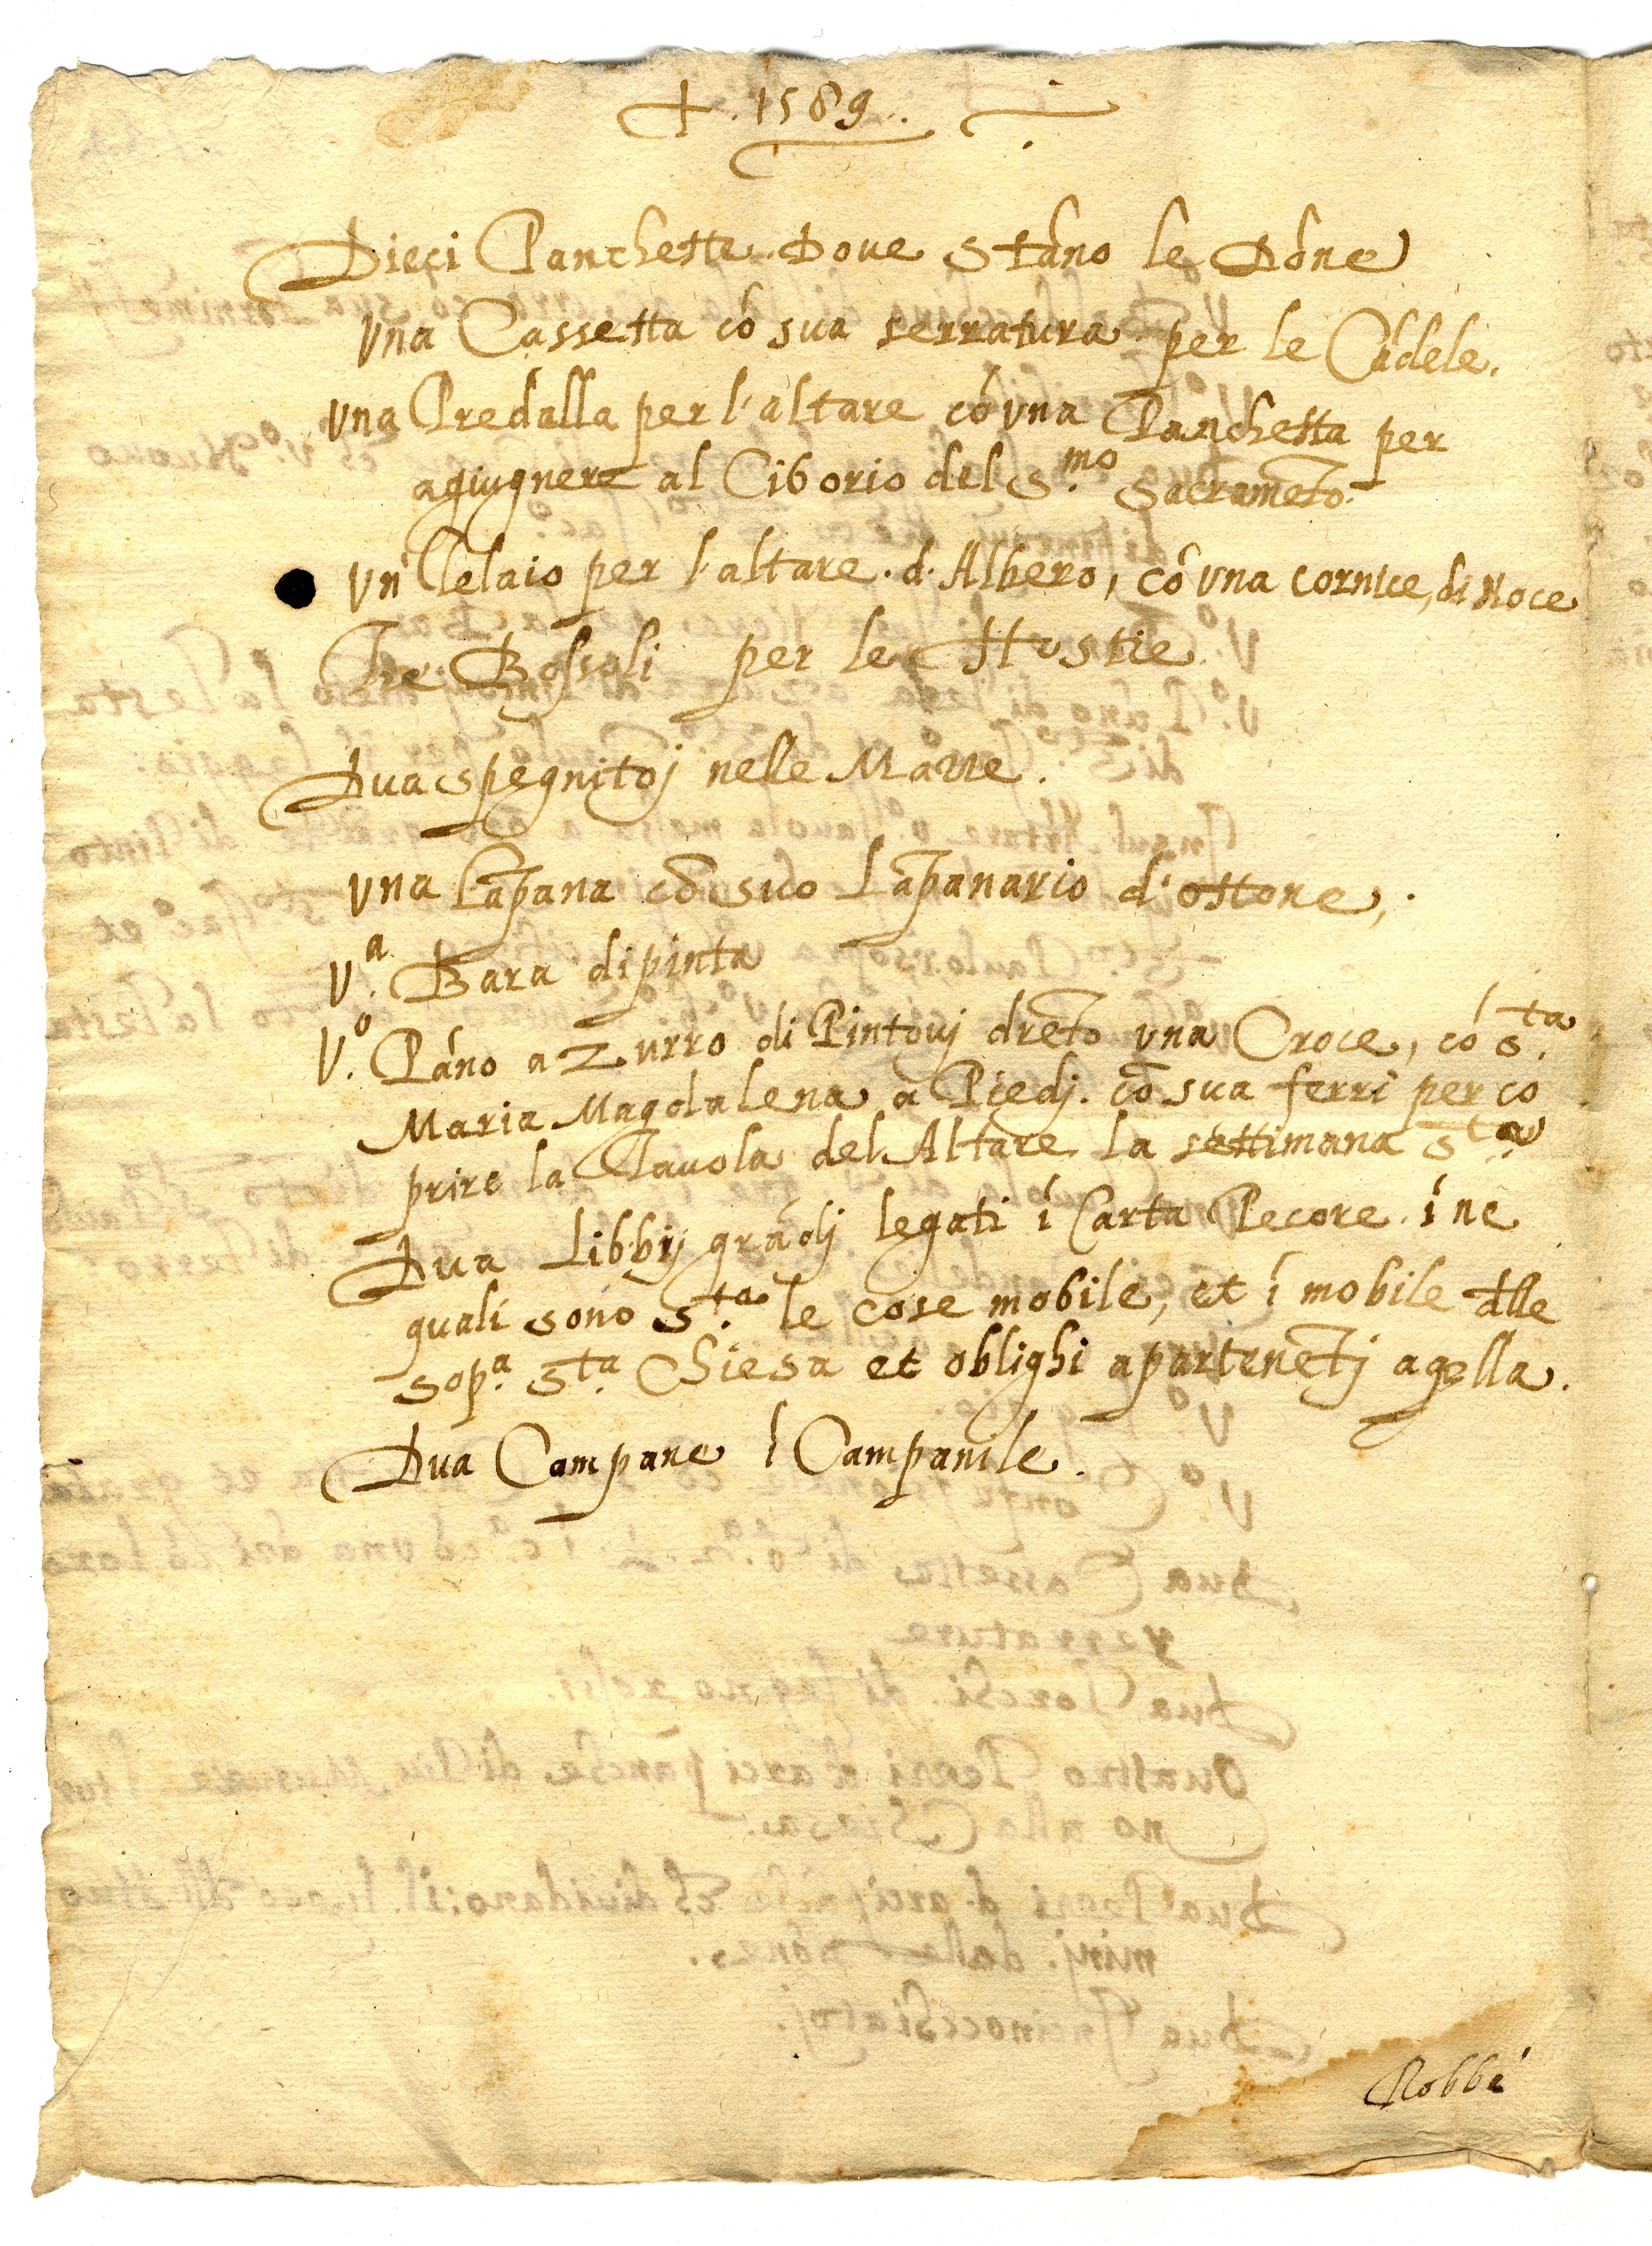 ✝. 1589.
Dieci Panchette Dove Stáno le Dóne
Vna Cassetta có sua serratura per le Cádele.
Vna Predalla per l'altare có vna Panchetta per
agiugnere al Ciborio del S.mo Sacrameto.
Vn Telaio per l'altare. d. Albero, có vna cornice, di Noce
Tre Bossoli per le Hostie.
Dua spegnitoj nelle Mazze.
Vna Lāpana cō suo Lāpanario d'ottone,.
V.a Bara dipinta
V.o Páno azurro di Pintovj dreto vna Croce, có s.ta
Maria Magdalena a Piedj. cō sua ferri per co
prire la Tavola del Altare la settimana s.ta
Dua Libbrj grādj legati í Carta Pecore í ne
quali sono s.ta le cose mobile, et í mobile dlle
sop.a s.ta Chiesa et oblighi apartenetj aqlla.
Dua Campane í Campanile.
Robbe